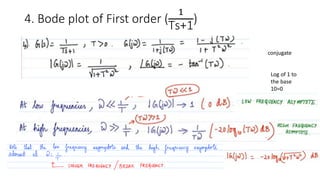 4. Bode plot of First order (1/Ts+1)
4) G(s) = 1/Ts+1, T>0. G(jω) = 1/1+j(Tω) = 1-j(Tω)/1+T²ω²
conjugate
|G(jω)| = 1/√1+T²ω², ∠G(jω) = -tan⁻¹(Tω)
Log of 1 to
the base
10=0
Tω<<1
At low frequencies, ω << 1/T, |G(jω)| → 1 (0 dB) LOW FREQUENCY ASYMPTOTE
(Tω>>1)
At high frequencies, ω >> 1/T, |G(jω)| → 1/Tω (-20log₁₀(Tω) dB) HIGH FREQUENCY ASYMPTOTE
Note that the low frequency asymptote and the high frequency asymptote
intersect at ω = 1/T |G(jω)| = -20log√(1+T²ω²) dB
CORNER FREQUENCY / BREAK FREQUENCY